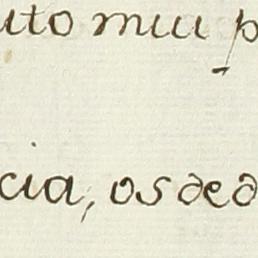 uto mui p
cia, os ded